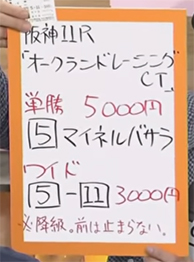 阪神11R
「オークランドレーシング
CT」
単勝 5000円
5 マイネルバサラ
ワイド
5-11 3000円
※降級。前は止まらない。